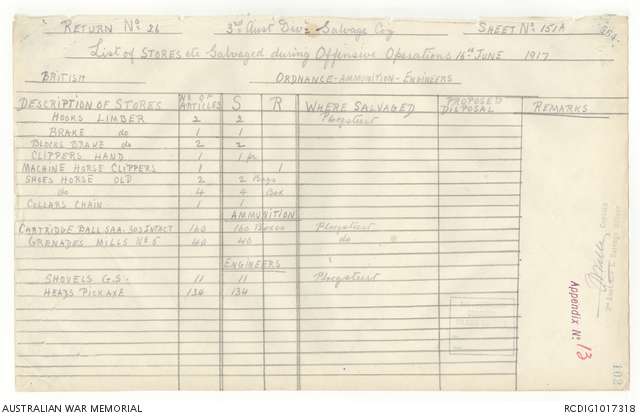 RETURN No 26 3rd Aust Divn Salvage Coy SHEET No 151A
List of STORES etc Salvaged during Offensive Operations 16th JUNE 1917
BRITISH ORDNANCE-AMMUNITION-ENGINEERS
DESCRIPTION OF STORES No OF ARTICLES S R WHERE SALVAGED PROPOSED DISPOSAL REMARKS
HOOKS LIMBER 2 2 Ploegsteert
BRAKE do 1 1
BLOCKS BRAKE do 2 2
CLIPPERS HAND 1 1 pr
MACHINE HORSE CLIPPERS 1 1
SHOES HORSE OLD 2 2 Bags
do 4 4 Box
COLLARS CHAIN 1 1
AMMUNITION
CARTRIDGE BALL S.A.A. .303 INTACT 160 160 Boxes Ploegsteert
GRENADES MILLS No 5 40 40 do
ENGINEERS
SHOVELS G.S. 11 11 Ploegsteert
HEADS PICKAXE 134 134
Appendix No 13
102
AUSTRALIAN WAR MEMORIAL RCDIG1017318